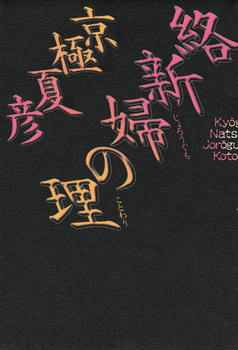 絡新婦の理
じょろうぐも
ことわり
京極夏彦
Kyōg
Nats
Jorōgu
Koto